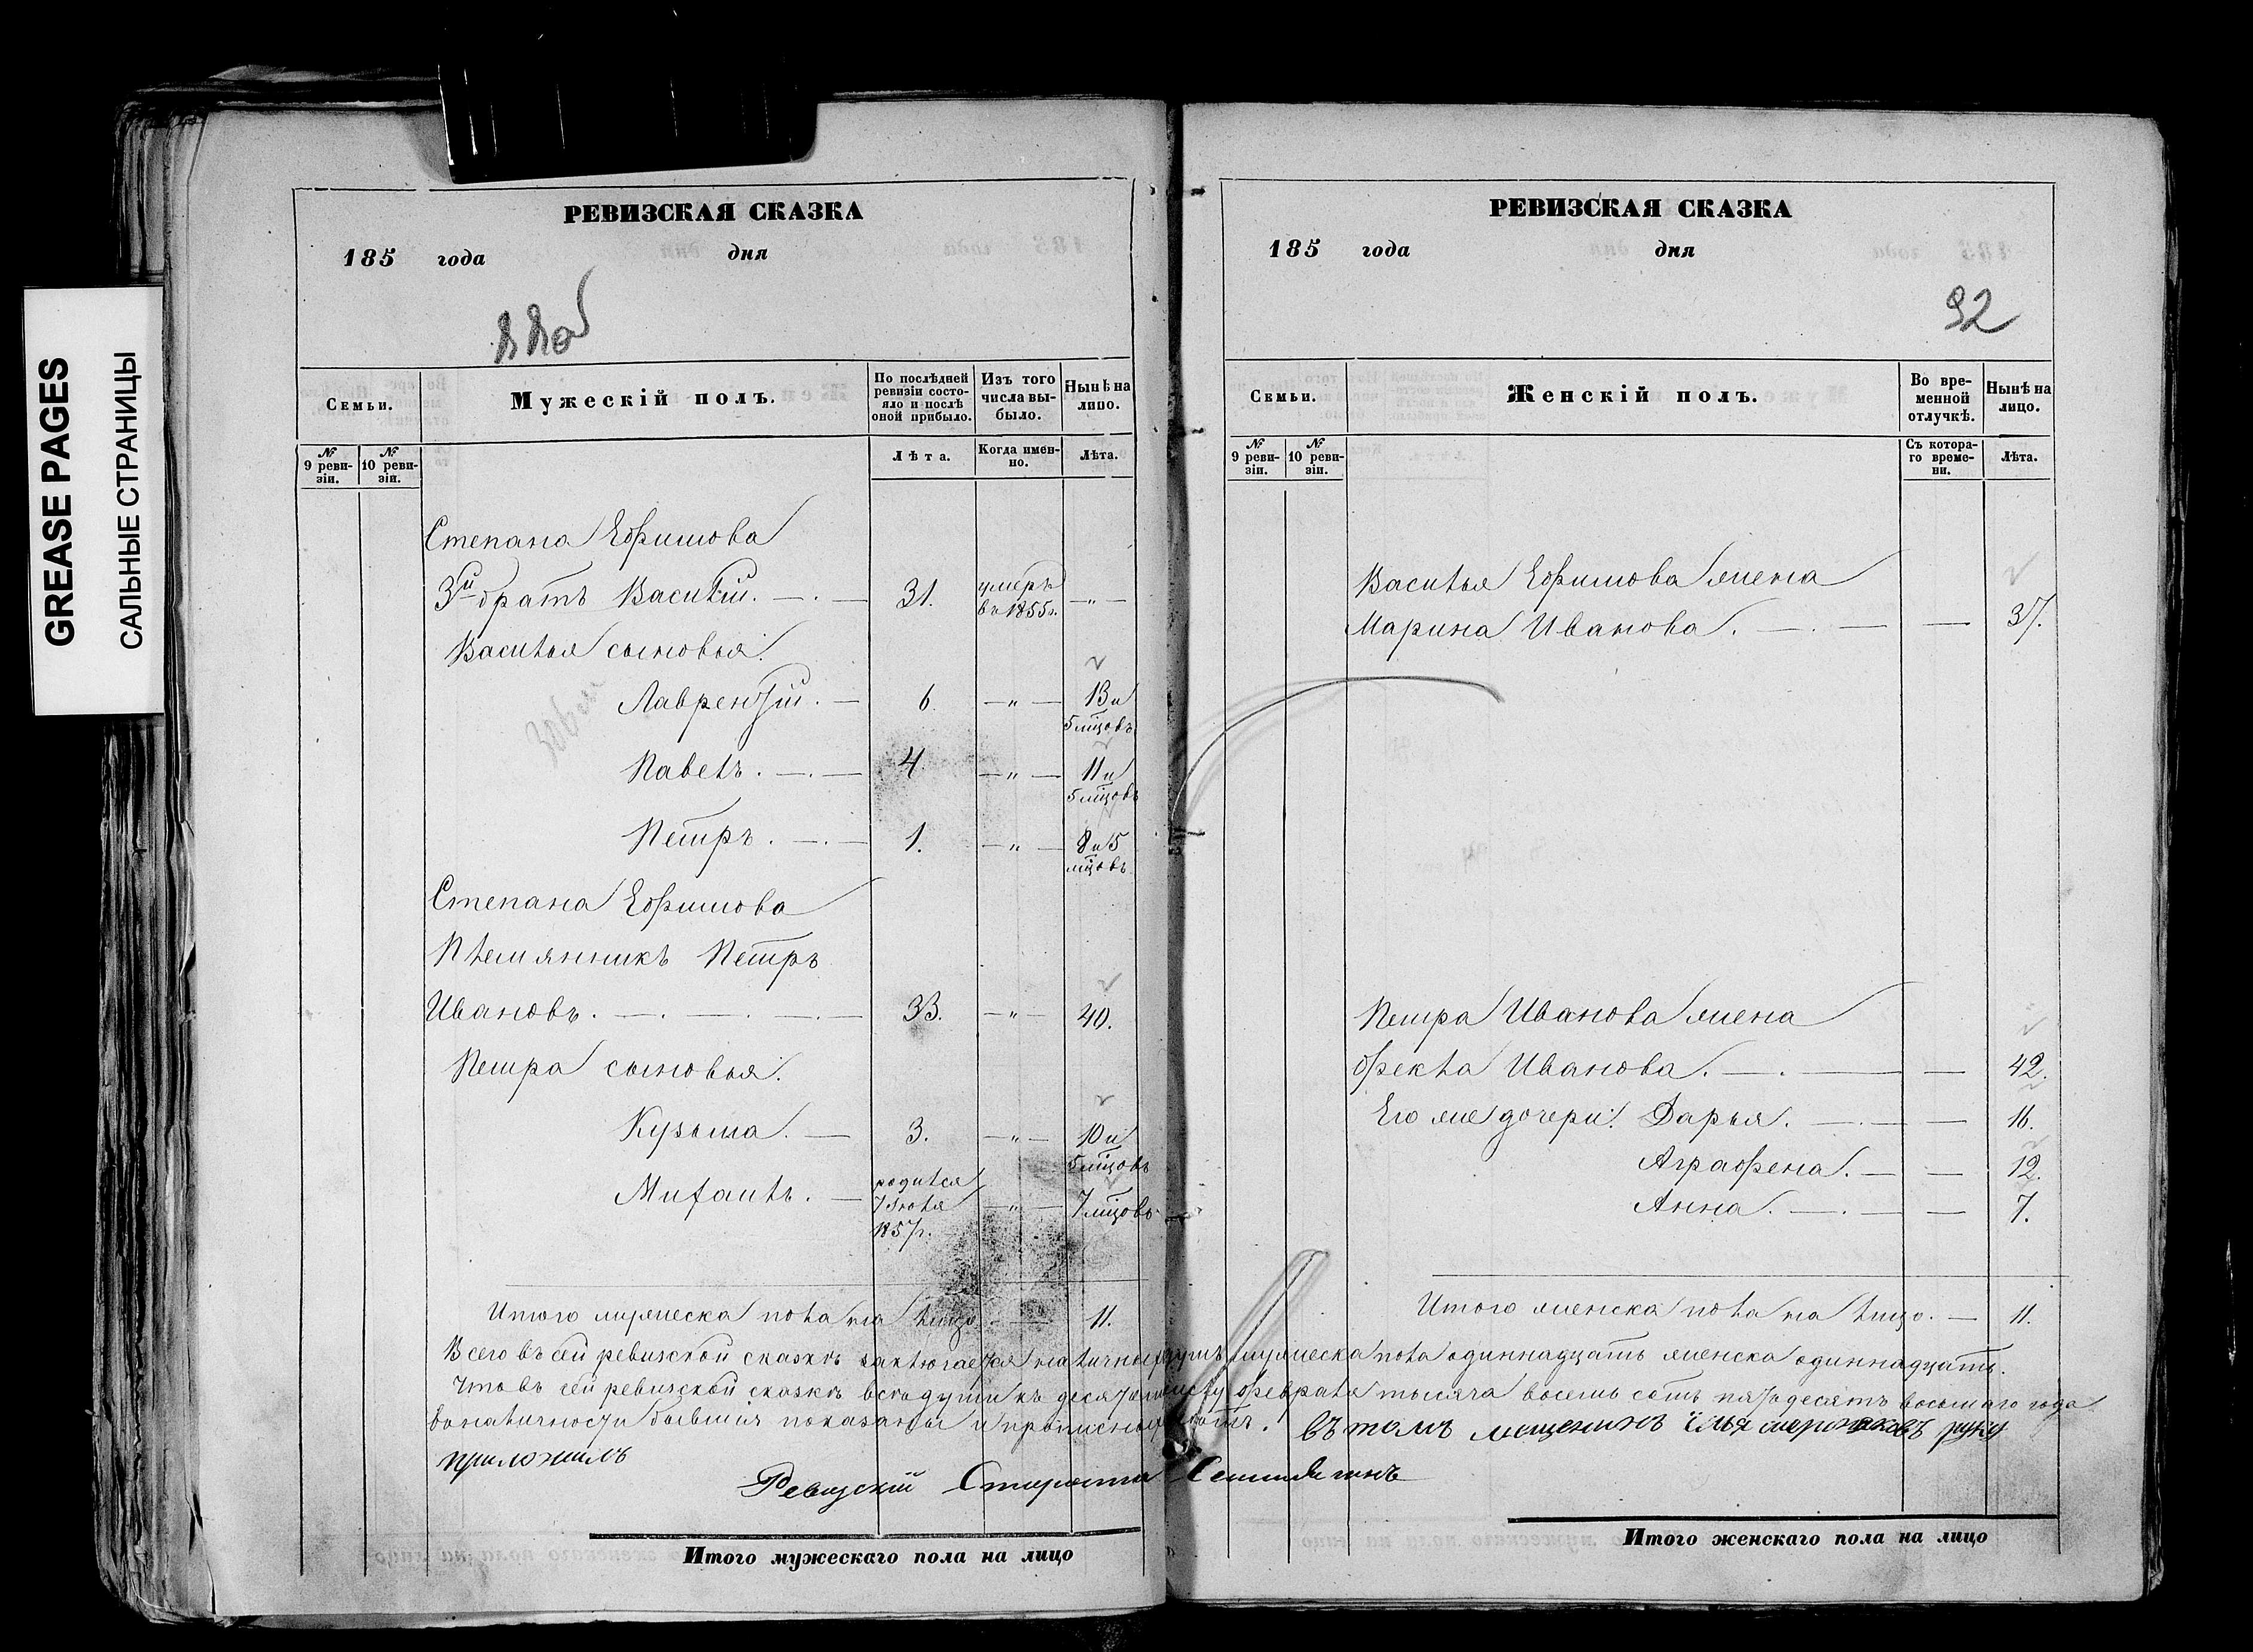 GREASE PAGES
САЛЬНЫЕ СТРАНИЦЫ
РЕВИЗСКАЯ СКАЗКА
185 года дня
Семьи.
Мужескій полъ.
По послѣдней ревизіи состояло и послѣ оной прибыло.
Изъ того числа выбыло.
Нынѣ на лицо.
№ 9 ревизіи.
№ 10 ревизіи.
Лѣта.
Когда именно.
Лѣта.
Степана Ефимова
3й братъ Василій. 31. умеръ въ 1855г. — " —
Василья сыновья:
Лаврентій. — 6. — " — 13 и 5 мцовъ
Павелъ. — 4. — " — 11 и 5 мцовъ
Петръ. — 1. — " — 8 и 5 мцовъ
Степана Ефимова
Племянникъ Петръ
Ивановъ. — 33. — " — 40.
Петра сыновья:
Кузьма. — 3. — " — 10 и 5 мцовъ
Михаилъ. — родился 7 Іюля 1857г. — " — 7 мцовъ
Итого мужеска пола на лицо — 11.
РЕВИЗСКАЯ СКАЗКА
185 года дня
92
Семьи.
Женскій полъ.
Во временной отлучкѣ.
Нынѣ на лицо.
№ 9 ревизіи.
№ 10 ревизіи.
Съ котораго времени.
Лѣта.
Василья Ефимова жена
Марина Иванова. — — 37.
Петра Иванова жена
Фекла Иванова. — — 42.
Его же дочери: Дарья. — — 16.
Аграфена. — — 12.
Анна. — — 7.
Итого женска пола на лицо. — 11.
Всего въ сей ревизской сказкѣ заключается наличныхъ душъ мужеска пола одиннадцать женска одиннадцать.
Что въ сей ревизской сказкѣ всѣ души къ десятому февраля тысяча восемь сотъ пятьдесятъ восьмаго года
въ наличности бывшія показаны и прописныхъ нѣтъ. въ томъ мещенинъ илья руку
приложилъ
Ревизскій Староста
Итого мужескаго пола на лицо
Итого женскаго пола на лицо